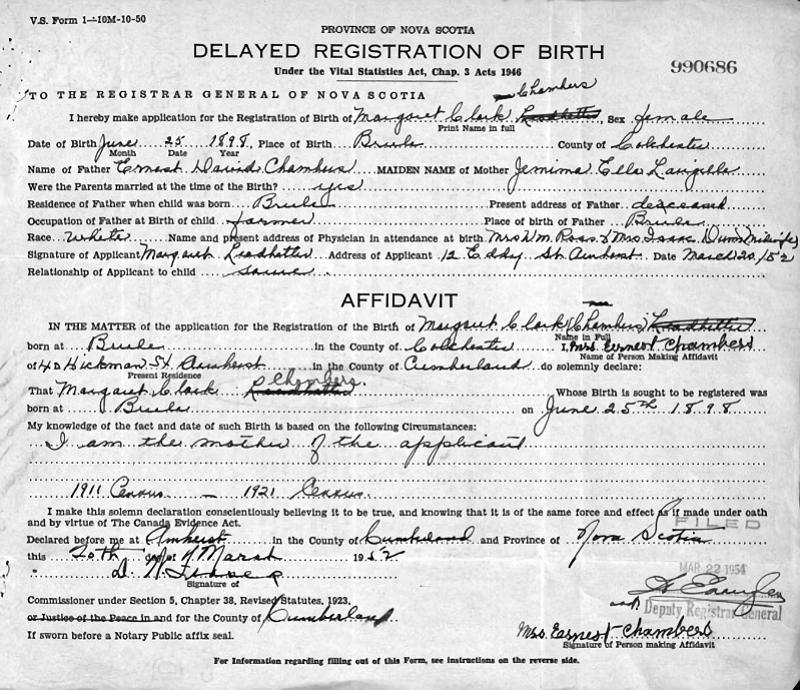 V.S. Form 1—10M-10-50
PROVINCE OF NOVA SCOTIA
DELAYED REGISTRATION OF BIRTH
990686
Under the Vital Statistics Act, Chap. 3 Acts 1946
TO THE REGISTRAR GENERAL OF NOVA SCOTIA
Chambers
I hereby make application for the Registration of Birth of Margaret Clark Leadbetter, Sex female
Print Name in full
Date of Birth June 25 1898, Place of Birth Brule County of Colchester
Month Date Year
Name of Father Ernest David Chambers MAIDEN NAME of Mother Jemima Ella
Were the Parents married at the time of the Birth? yes
Residence of Father when child was born Brule Present address of Father deceased
Occupation of Father at Birth of child farmer Place of birth of Father Brule
Race White Name and present address of Physician in attendance at birth Mrs Wm. Ross & Mrs. Isaac Dunn (Midwife)
Signature of Applicant Margaret Leadbetter Address of Applicant 12 Eddy St. Amherst Date March 20/52
Relationship of Applicant to child same
AFFIDAVIT
IN THE MATTER of the application for the Registration of the Birth of Margaret Clark (Chambers) Leadbetter
Name in Full
born at Brule in the County of Colchester I, Mrs. Earnest Chambers
Name of Person Making Affidavit
of 40 Hickman St. Amherst in the County of Cumberland do solemnly declare:
Present Residence
Chambers.
That Margaret Clark Leadbetter Whose Birth is sought to be registered was
born at Brule on June 25th 1898
My knowledge of the fact and date of such Birth is based on the following Circumstances:
I am the mother of the applicant
1911 Census — 1921 Census.
I make this solemn declaration conscientiously believing it to be true, and knowing that it is of the same force and effect as if made under oath
and by virtue of The Canada Evidence Act.
FILED
Declared before me at Amherst in the County of Cumberland and Province of Nova Scotia
this 20th day of March 1952
MAR 22 1954
Signature of
Commissioner under Section 5, Chapter 38, Revised Statutes, 1923.
Deputy Registrar General
or Justice of the Peace in and for the County of Cumberland
If sworn before a Notary Public affix seal.
Mrs. Earnest Chambers
Signature of Person making Affidavit
For Information regarding filling out of this Form, see instructions on the reverse side.